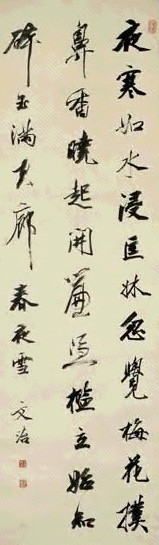 夜寒如水浸匡牀忽覺梅花撲
鼻香曉起開簾凭檻立始知
碎玉滿長廊 春夜雪 文治